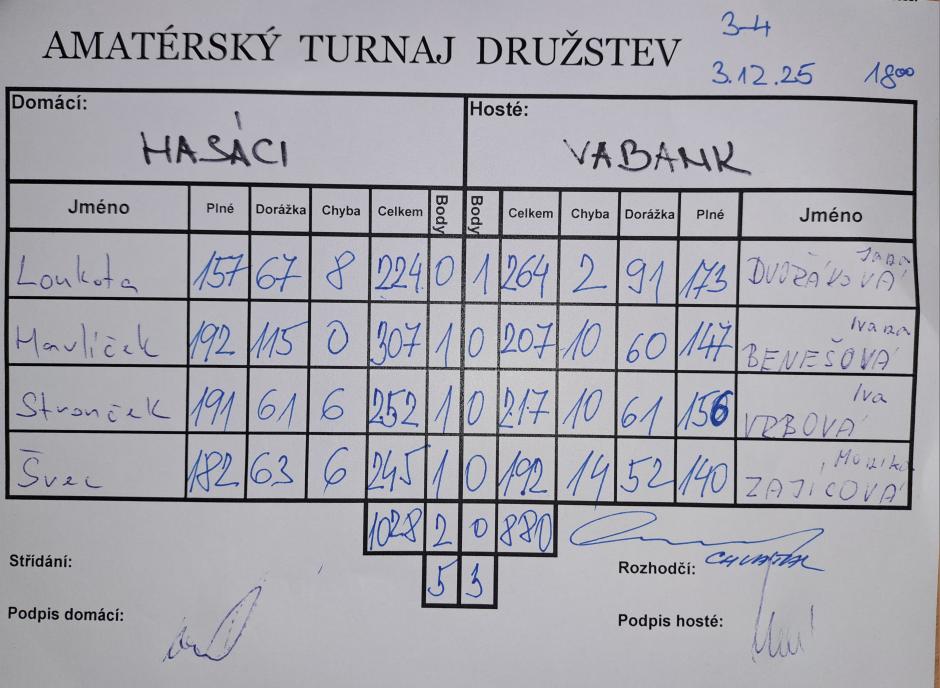 3-4
AMATÉRSKÝ TURNAJ DRUŽSTEV
3.12.25 18⁰⁰
Domácí: HASÁCI Hosté: VABANK
Jméno Plné Dorážka Chyba Celkem Body Body Celkem Chyba Dorážka Plné Jméno
Loukota 157 67 8 224 0 1 264 2 91 173 Jana DVOŘÁKOVÁ
Havlíček 192 115 0 307 1 0 207 10 60 147 Ivana BENEŠOVÁ
Stronček 191 61 6 252 1 0 217 10 61 156 Iva VRBOVÁ
Švec 182 63 6 245 1 0 192 14 52 140 Monika ZAJÍCOVÁ
1028 2 0 880
5 3
Střídání: Rozhodčí:
Podpis domácí: Podpis hosté: